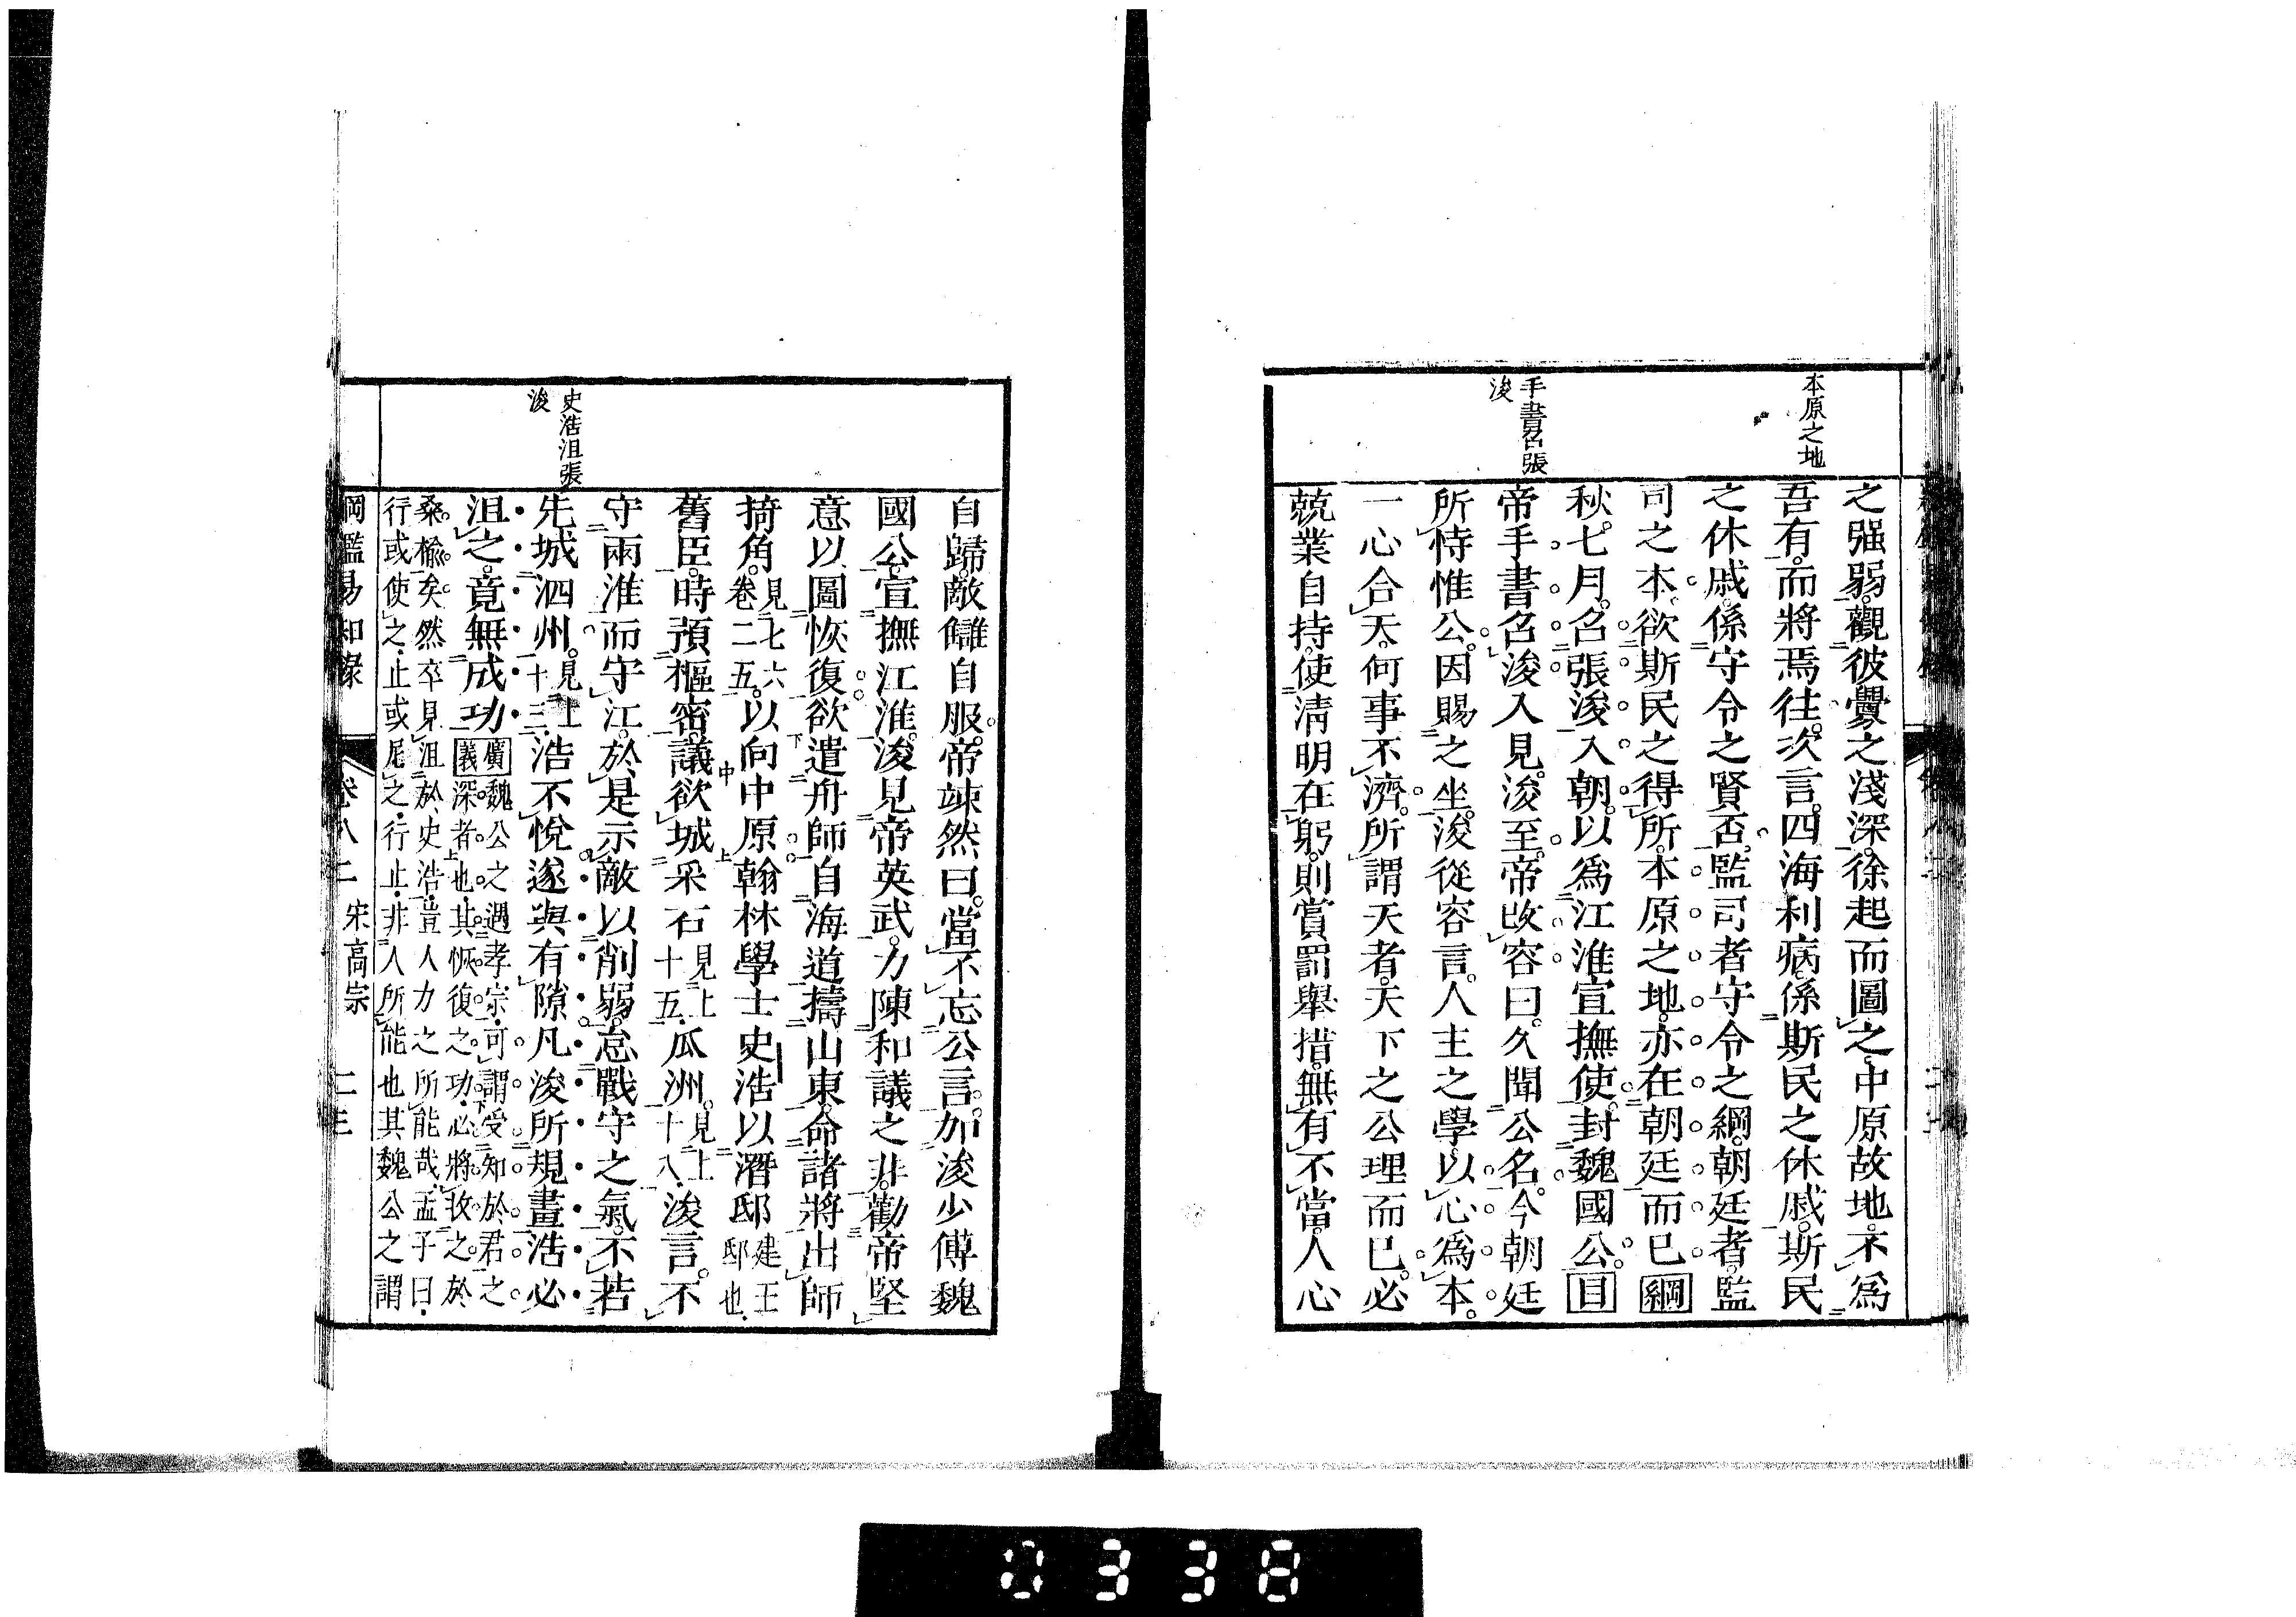 本原之地
手書召張
浚
之强弱。觀彼釁之淺深。徐起而圖之。中原故地。不爲
吾有。而將焉往。次言。四海利病。係斯民之休戚。斯民
之休戚。係守令之賢否。監司者守令之綱。朝廷者。監
司之本。欲斯民之得所。本原之地。亦在朝廷而已綱
秋。七月。召張浚入朝。以爲江淮宣撫使。封魏國公。目
帝手書召浚入見。浚至。帝改容曰。久聞公名。今朝廷
所恃惟公。因賜之坐。浚從容言。人主之學。以心爲本。
一心合天。何事不濟。所謂天者。天下之公理而已。必
兢業自持。使淸明在躬。則賞罰舉措。無有不當。人心
史浩沮張
浚
自歸。敵讎自服。帝竦然曰。當不忘公言。加浚少傅魏
國公。宣撫江淮。浚見帝英武。力陳和議之非。勸帝堅
意以圖恢復。欲遣舟師自海道擣山東。命諸將出師
掎角。見七六卷二五。以向中原。翰林學士史浩以潛邸建王邸也。
舊臣。時預樞密。議欲城采石見上十五。瓜洲。見上十八。浚言。不
守兩淮而守江。於是示敵以削弱。怠戰守之氣。不若
先城泗州。見上十三。浩不悅遂與有隙凡浚所規畫浩必
沮之。竟無成功廣義魏公之遇孝宗。可謂受知於君之
深者也。其恢復之功。必將收之於
桑榆矣。然卒見沮於史浩。豈人力之所能哉。孟子曰。
行或使之。止或尼之。行止。非人所能也其魏公之謂
綱鑑易知錄 卷八二 宋高宗